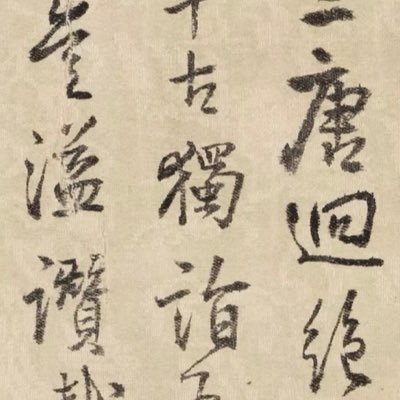 唐迴絕
古獨詣
豈溢讚